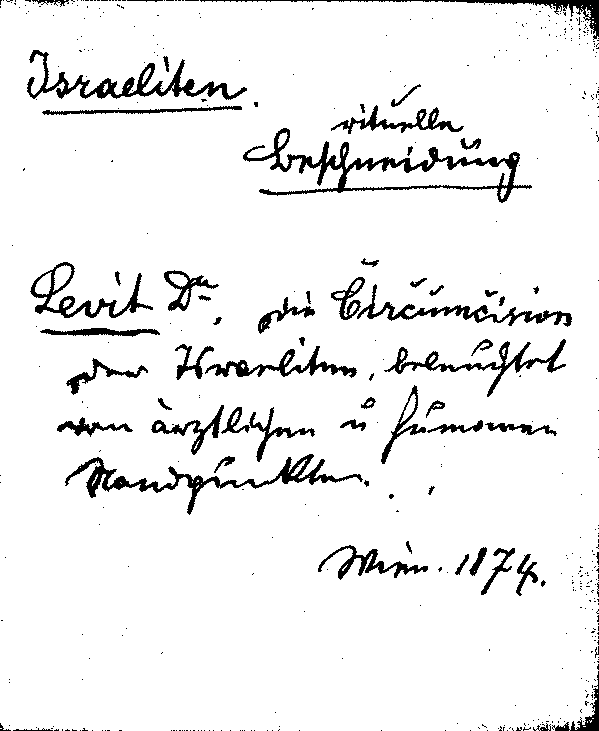 Israeliten.
rituelle
Beschneidung
Levit Dr., die Circumcision
der Israeliten, beleuchtet
vom ärztlichen u humanen
Standpunkte.
Wien. 1874.